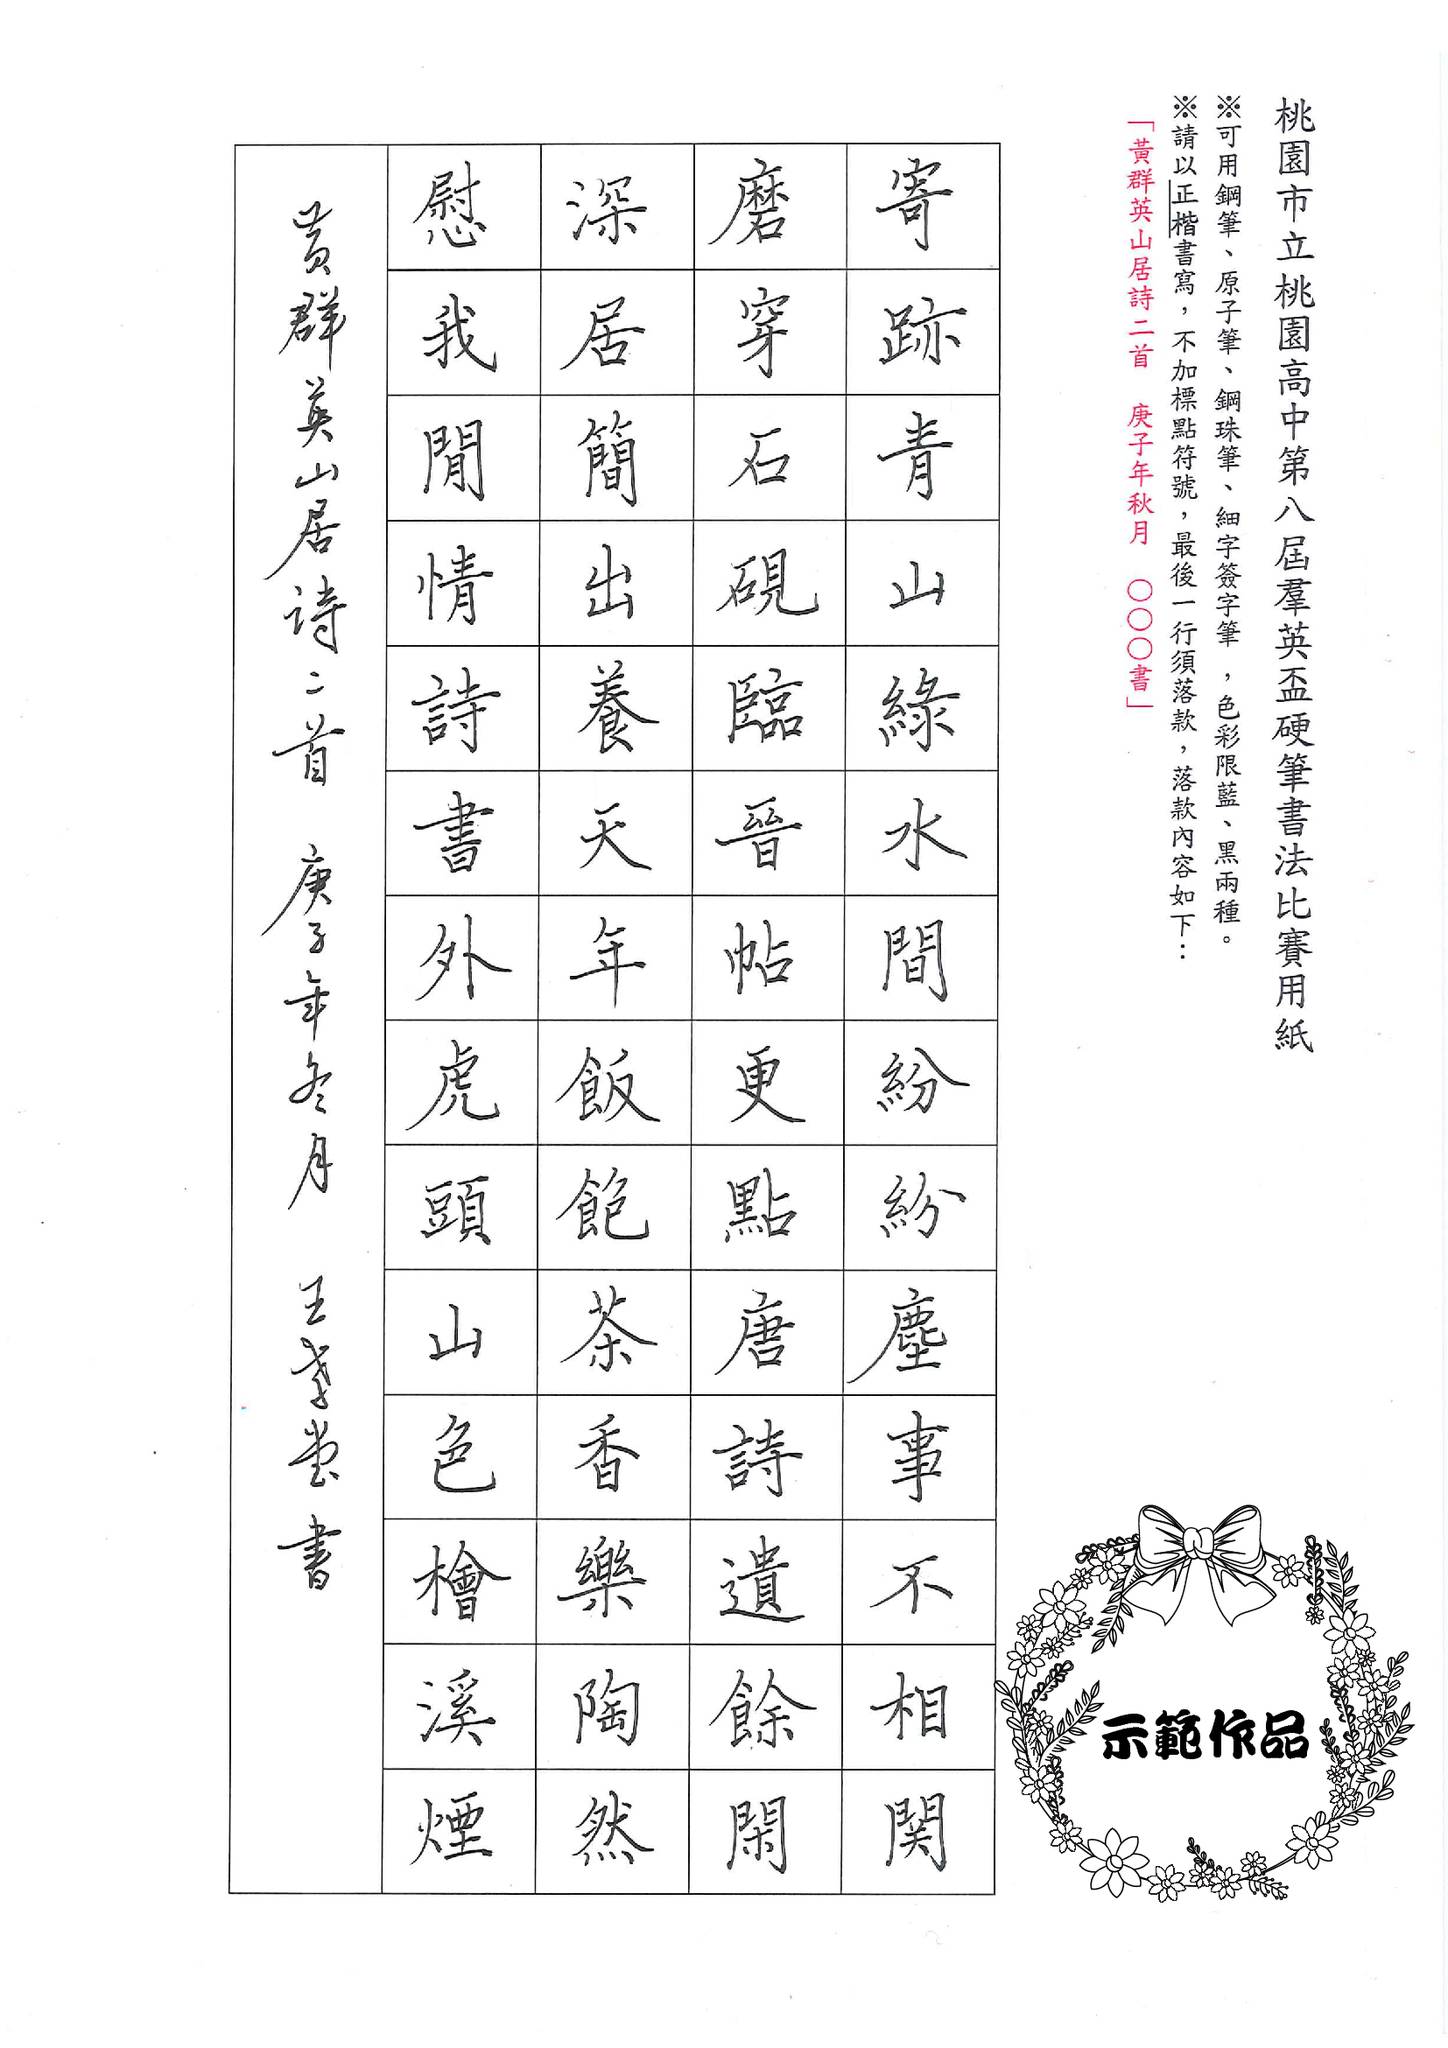 桃園市立桃園高中第八屆羣英盃硬筆書法比賽用紙
※可用鋼筆、原子筆、鋼珠筆、細字簽字筆，色彩限藍、黑兩種。
※請以正楷書寫，不加標點符號，最後一行須落款，落款內容如下：
「黃群英山居詩二首 庚子年秋月 〇〇〇書」
寄跡青山綠水間紛紛塵事不相関
磨穿石硯臨晉帖更點唐詩遣餘閑
深居簡出養天年飯飽茶香樂陶然
慰我閒情詩書外虎頭山色檜溪煙
黃群英山居詩二首 庚子年冬月 王 書
示範作品